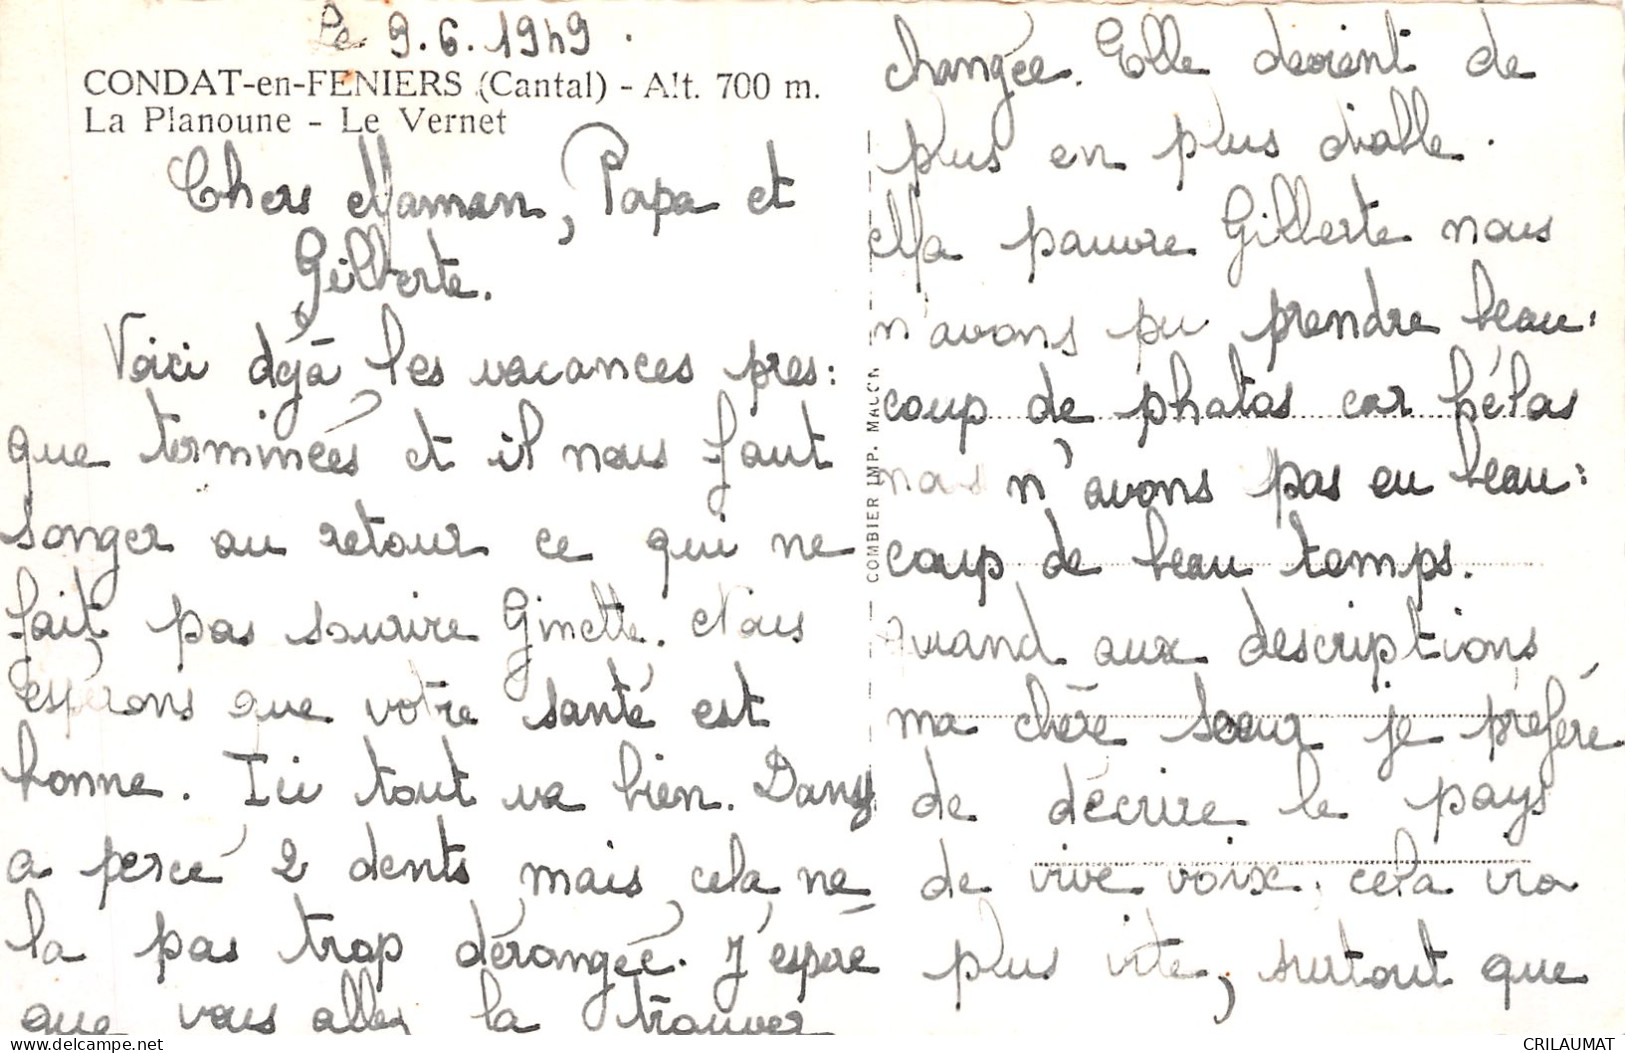 Le 9.6.1949.
CONDAT-en-FENIERS (Cantal) - Alt. 700 m.
La Planoune - Le Vernet
Chers Maman, Papa et
Gilberte.
Voici déjà les vacances pres:
que terminées et il nous faut
songer au retour ce qui ne
fait pas sourire Ginette. Nous
espérons que votre santé est
bonne. Ici tout va bien. Dany
a percé 2 dents mais cela ne
la pas trop dérangée. J'espère
que vous allez la trouver
COMBIER IMP. MACON
changée. Elle devient de
plus en plus diable.
Ma pauvre Gilberte nous
n'avons pu prendre beau:
coup de photos car hélas
nous n'avons pas eu beau:
coup de beau temps.
Quand aux descriptions
ma chère soeur je préfére
de décrire le pays
de vive voix, cela ira
plus vite, surtout que
delcampe.net
CRILAUMAT